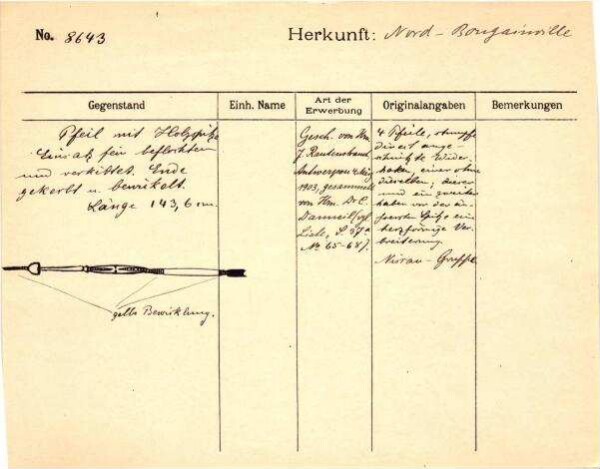 No. 8643
Herkunft: Nord-Bougainville
Gegenstand
Einh. Name
Art der Erwerbung
Originalangaben
Bemerkungen
Pfeil mit Holzspitze
Einsatz fein beflochten
und verkittet. Ende
gekerbt u. bewickelt.
Länge 143,6 cm.
Gesch. von Hrn.
J.
Antwerpen
1903, gesammelt
von Hrn. Dr. C.
Liste, S. 37a
No 65-687.
4 Pfeile, stumpfe
haken, einer ohne
dieselben; dieser
und ein zweiter
haben vor der
Spitze eine
herzförmige Ver-
breiterung
Gruppe
gelbe Bewicklung.